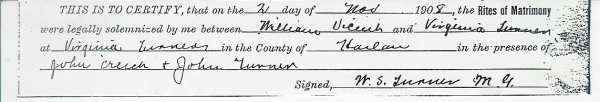 THIS IS TO CERTIFY, that on the 2 day of Nov 1908, the Rites of Matrimony
were legally solemnized by me between William and Virginia Turner
at Virginia Turners in the County of Harlan in the presence of
John Creech & John Turner
Signed, W. S. Turner M. G.